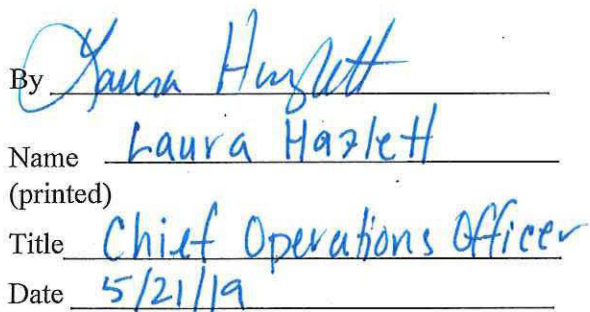 By Laura Hazlett
Name Laura Hazlett
(printed)
Title Chief Operations Officer
Date 5/21/19